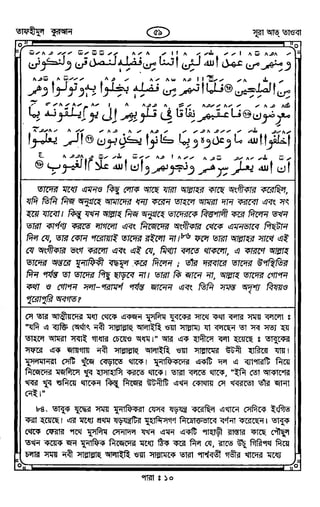 তাফহীমুল কুরআন ৫৯ সূরা আত্ তাওবা
وَمِنْهُمْ مَّنْ عٰهَدَ اللّٰهَ لَئِنْ اٰتٰىنَا مِنْ فَضْلِهٖ لَنَصَّدَّقَنَّ وَلَنَكُوْنَنَّ
مِنَ الصّٰلِحِيْنَ۝ فَلَمَّآ اٰتٰىهُمْ مِّنْ فَضْلِهٖ بَخِلُوْا بِهٖ وَتَوَلَّوْا وَّهُمْ
مُّعْرِضُوْنَ۝ فَاَعْقَبَهُمْ نِفَاقًا فِيْ قُلُوْبِهِمْ اِلٰى يَوْمِ يَلْقَوْنَهٗ بِمَآ
اَخْلَفُوا اللّٰهَ مَا وَعَدُوْهُ وَبِمَا كَانُوْا يَكْذِبُوْنَ۝ اَلَمْ يَعْلَمُوْٓا
اَنَّ اللّٰهَ يَعْلَمُ سِرَّهُمْ وَنَجْوٰىهُمْ وَاَنَّ اللّٰهَ عَلَّامُ الْغُيُوْبِ۝
তাদের মধ্যে এমনও কিছু লোক আছে যারা আল্লাহর কাছে অংগীকার করেছিল,
যদি তিনি নিজ অনুগ্রহে আমাদের ধন্য করেন তাহলে আমরা দান করবো এবং সৎ
হয়ে যাবো। কিন্তু যখন আল্লাহ নিজ অনুগ্রহে তাদেরকে বিত্তশালী করে দিলেন তখন
তারা কার্পণ্য করতে লাগলো এবং নিজেদের অংগীকার থেকে এমনভাবে পিছটান
দিল যে, তার কোন পরোয়াই তাদের রইলো না।৮৬ ফলে তারা আল্লাহর সাথে এই
যে অংগীকার ভংগ করলো এবং এই যে, মিথ্যা বলতে থাকলো, এ কারণে আল্লাহ
তাদের অন্তরে মুনাফিকী বদ্ধমূল করে দিলেন; তাঁর দরবারে তাদের উপস্থিতির
দিন পর্যন্ত তা তাদের পিছু ছাড়বে না। তারা কি জানে না, আল্লাহ তাদের গোপন
কথা ও গোপন সলা-পরামর্শ পর্যন্ত জানেন এবং তিনি সমস্ত অদৃশ্য বিষয়ও
পুরোপুরি অবগত?
সে তার আত্মীয়দের মধ্য থেকে একজন মুসলিম যুবকের সাথে কথা বলার সময় বললো :
"যদি এ ব্যক্তি (অর্থাৎ নবী সাল্লাল্লাহু আলাইহি ওয়া সাল্লাম) যা বলছেন তা সব সত্য হয়
তাহলে আমরা সবাই গাধার চেয়েও অধম।" আর এক হাদীসে বলা হয়েছে : তাবুকের
সফরে এক জায়গায় নবী সাল্লাল্লাহু আলাইহি ওয়া সাল্লামের উটনী হারিয়ে যায়।
মুসলমানরা সেটি খুঁজে বেড়াতে থাকে। মুনাফিকদের একটি দল এ ব্যাপারটি নিয়ে
নিজেদের মজলিসে খুব হাসাহাসি করতে থাকে। তারা বলতে থাকে, "ইনি তো আকাশের
খবর খুব শুনিয়ে থাকেন কিন্তু নিজের উটনীটি এখন কোথায় সে খবরতো তাঁর জানা
নেই।"
৮৪. তাবুক যুদ্ধের সময় মুনাফিকরা যেসব ষড়যন্ত্র করেছিল এখানে সেদিকে ইংগিত
করা হয়েছে। এর মধ্যে প্রথম ষড়যন্ত্রটির মুহাদ্দিসগণ নিম্নোক্তভাবে বর্ণনা করেছেন। তাবুক
থেকে ফেরার পথে মুসলিম সেনাদল যখন এমন একটি পাহাড়ী রাস্তার কাছে পৌঁছুল
তখন কয়েক জন মুনাফিক নিজেদের মধ্যে ঠিক করে নিল যে, রাতে উঁচু গিরিপথ দিয়ে
চলার সময় নবী সাল্লাল্লাহু আলাইহি ওয়া সাল্লামকে তারা পার্শ্ববর্তী গভীর খাদের মধ্যে
পারা : ১০